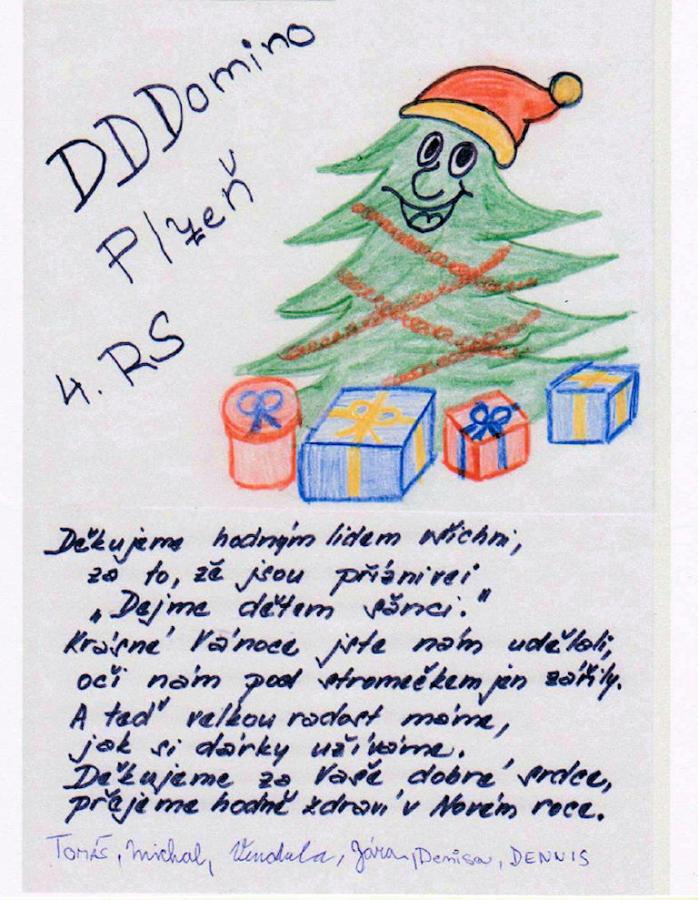 DDDomino
Plzeň
4. RS
Děkujeme hodným lidem všichni,
za to, že jsou příznivci
„Dejme dětem šanci."
Krásné Vánoce jste nám udělali,
oči nám pod stromečkem jen zářily.
A teď velkou radost máme,
jak si dárky užíváme.
Děkujeme za Vaše dobré srdce,
přejeme hodně zdraví v Novém roce.
Tomáš, Michal, Vendula, Jára, Denisa, DENNIS